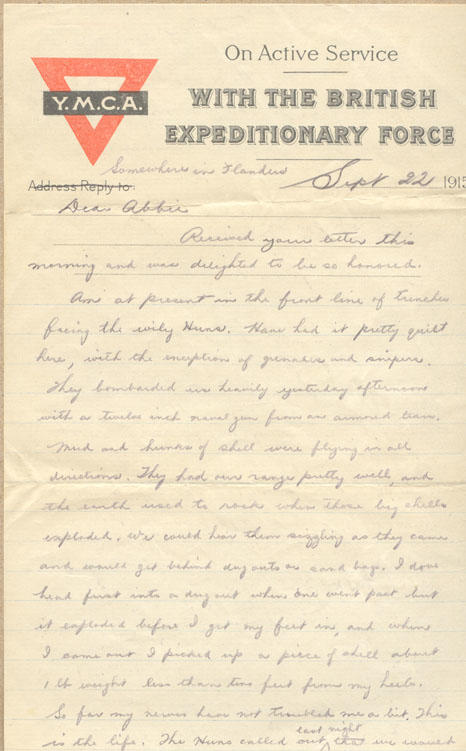 Y.M.C.A.
On Active Service
WITH THE BRITISH
EXPEDITIONARY FORCE
Somewhere in Flanders Sept 22 1915
Address Reply to
Dear Abbie
Received your letter this
morning and was delighted to be so honored.
Am at present in the front line of trenches
facing the wily Huns. Have had it pretty quiet
here, with the exception of grenades and snipers.
They bombarded us heavily yesterday afternoon
with a twelve inch naval gun from an armored train.
Mud and hunks of shell were flying in all
directions. They had our range pretty well, and
the earth used to rock when those big shells
exploded. We could hear them sizzling as they came
and would get behind dugouts or sand bags. I dove
head first into a dugout when one went past but
it exploded before I got my feet in, and when
I came out I picked up a piece of shell about
1 lb weight less than two feet from my heels.
So far my nerves have not troubled me a bit. This
is the life. The Huns called out last night that we would